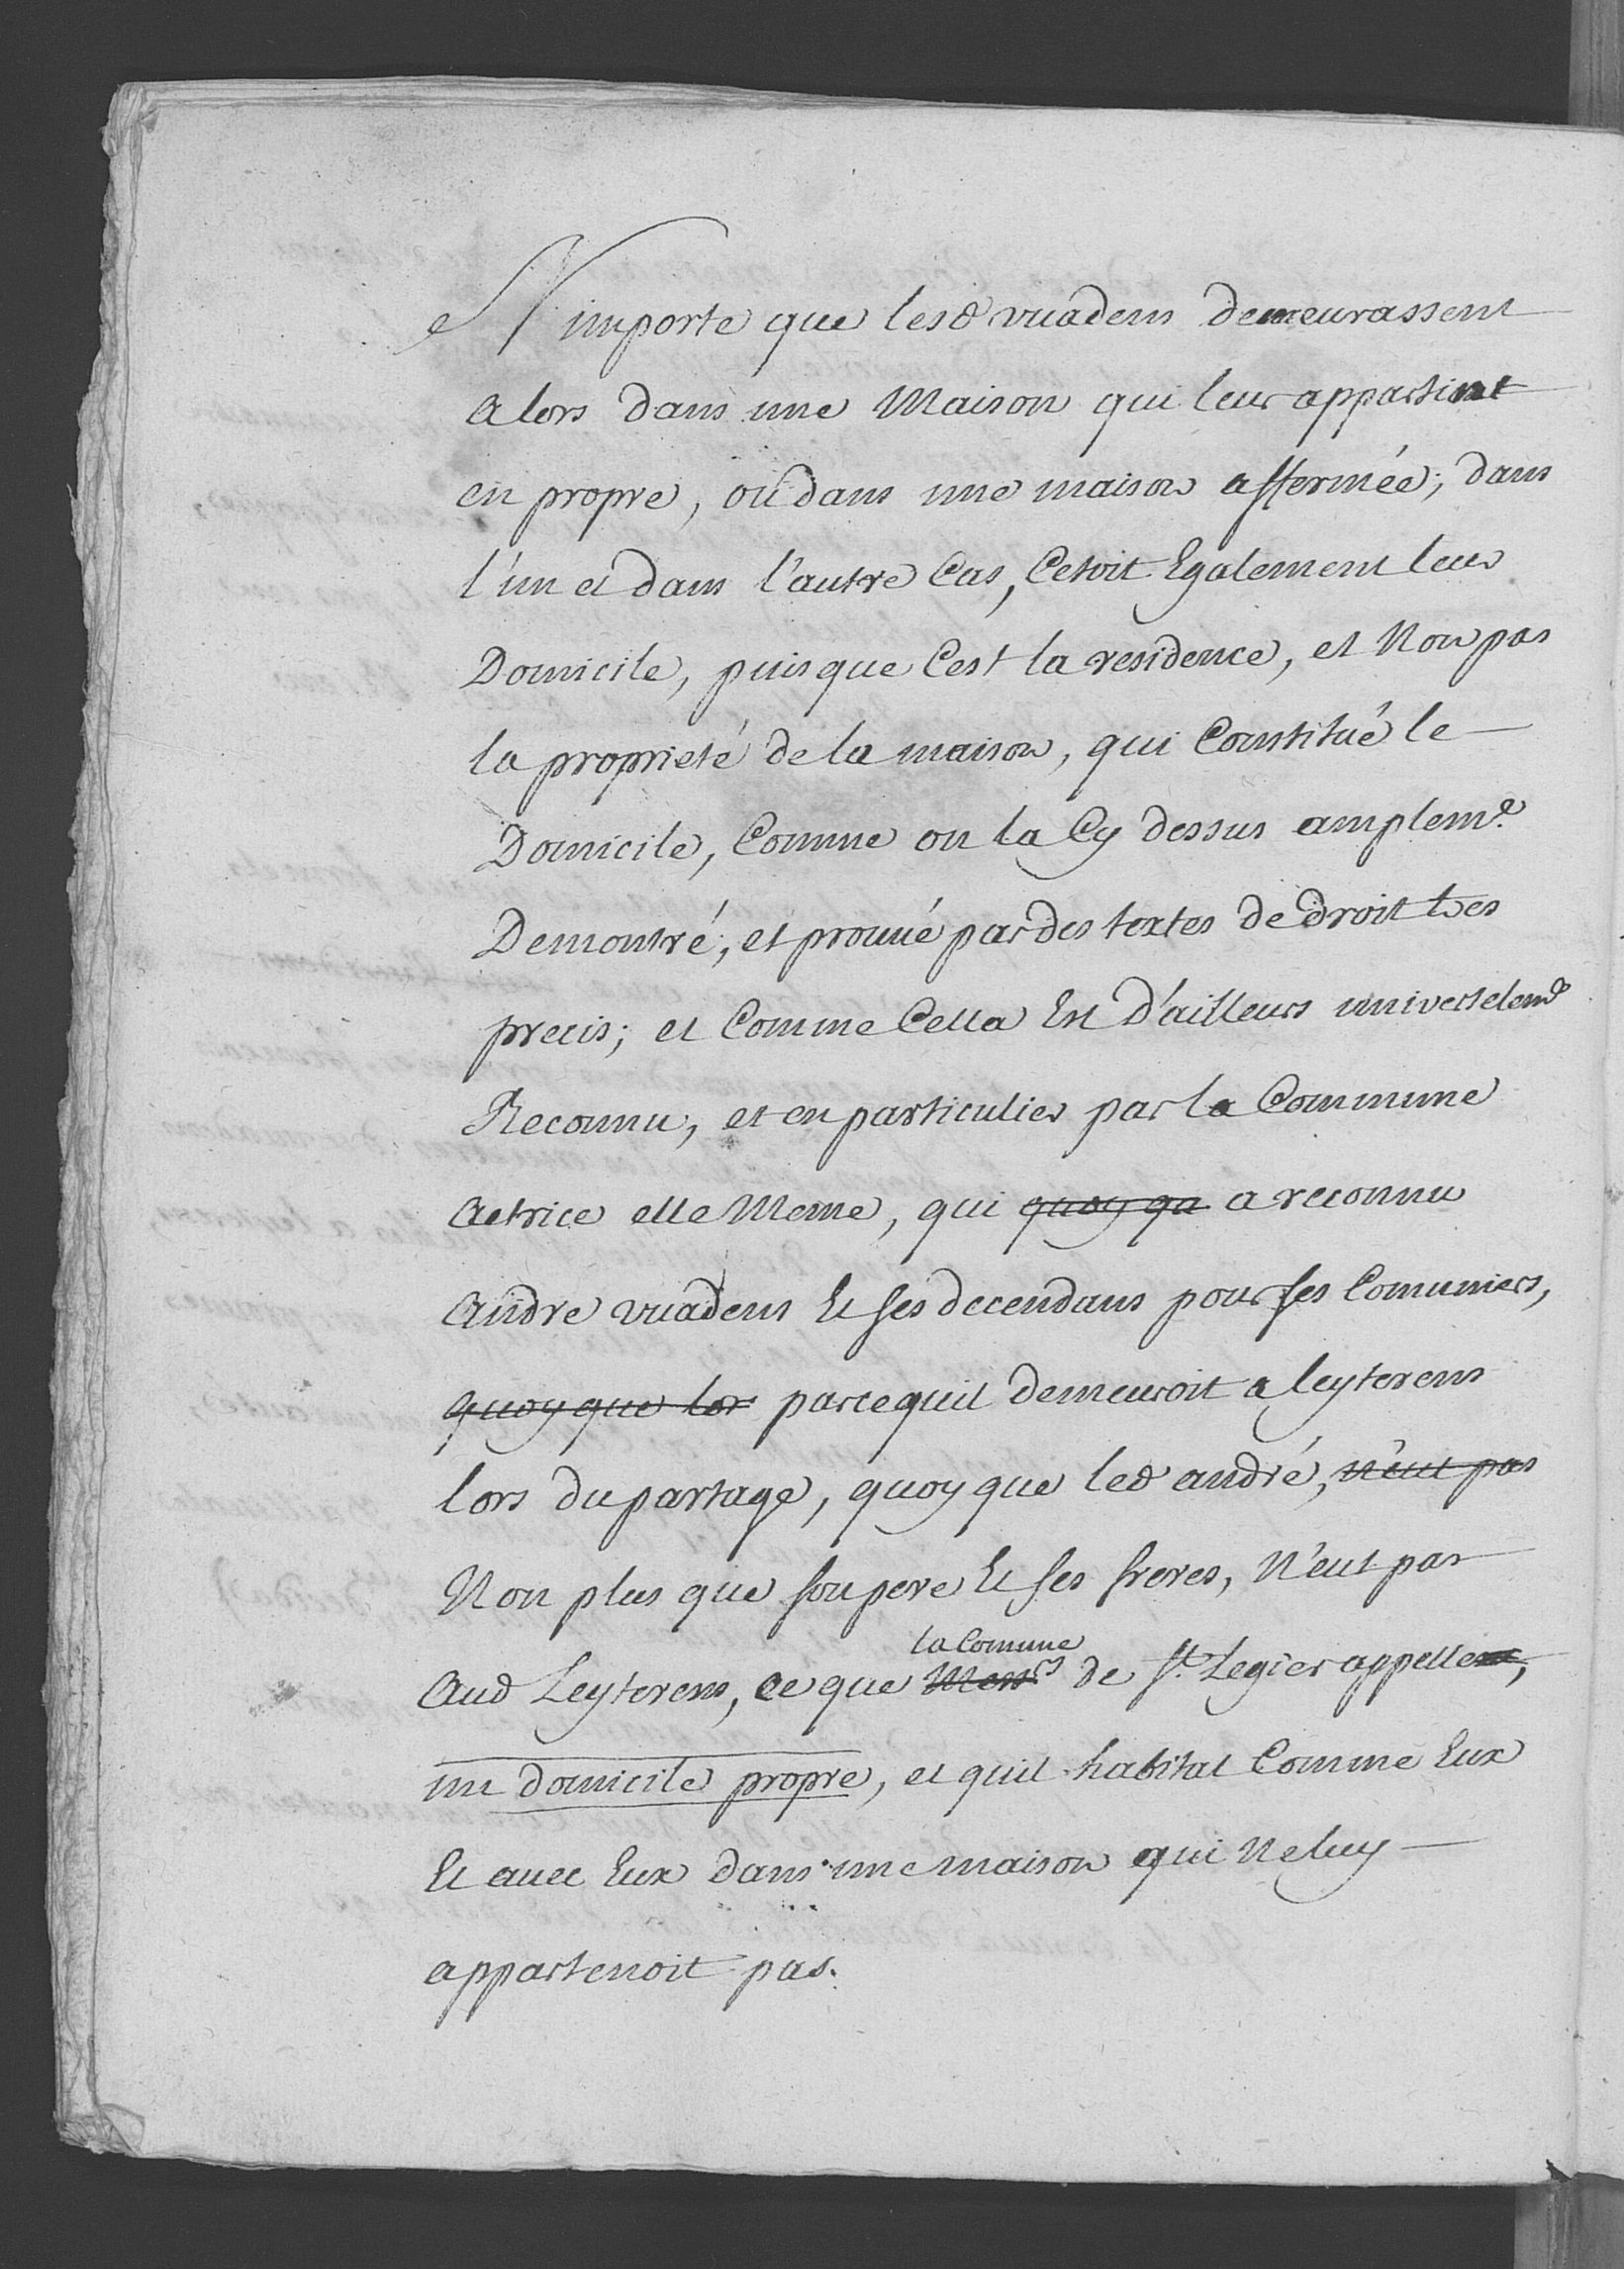 N'importe que lesd vuadens demeurassent
alors dans une Maison qui leur appartint
en propre, ou dans une maison affermée; dans
l'un et dans l'autre Cas, Cetoit Egalement leur
Domicile, puisque C'est la residence, et Non pas
la proprieté de la maison, qui Constitué le
Domicile, Comme on la Cy dessus amplemt
Demontré, et prouué par des textes de droit tres
precis; et Comme Cella Est D'ailleurs universelemt
Reconnu, et en particulier par la Commune
actrice elle Meme, qui quoy qu a reconnu
andre vuadens Et ses decendans pour ses Comuniers,
quoy que lor parcequil demeuroit a leyterens
lors du partage, quoy que led andré, n'eut pas
Non plus que son pere Et ses freres, N'eut pas
la Comune
Aud Leyterens, ce que Messrs de St. Legier appellent,
un domicile propre, et quil habitat Comme Eux
Et avec Eux dans une maison qui Ne luy
appartenoit pas.